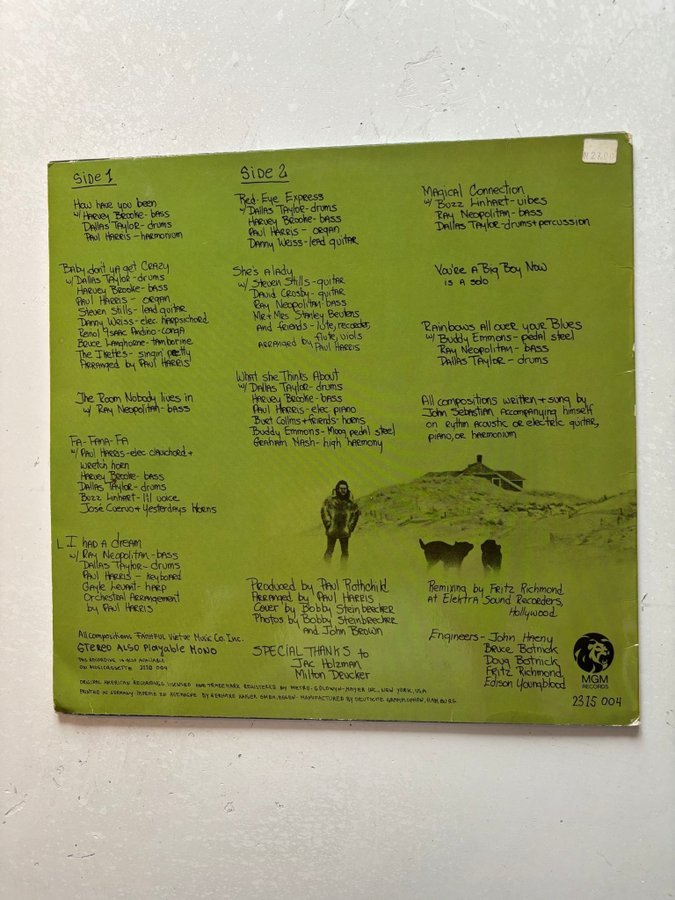 Side 1
How have you been
w/ Harvey Brooke - bass
Dallas Taylor - drums
Paul Harris - harmonium
Baby don't ya get Crazy
w/ Dallas Taylor - drums
Harvey Brooke - bass
Paul Harris - organ
Steven Stills - lead guitar
Danny Weiss - elec. harpsichord
Reno / Isaac Andino - conga
Bruce Langhorne - tamborine
The Ikettes - singin' pretty
Arranged by Paul Harris
The Room Nobody lives in
w/ Ray Neopolitan - bass
Fa-Fana-Fa
w/ Paul Harris - elec clavichord +
wretch horn
Harvey Brooke - bass
Dallas Taylor - drums
Buzz Linhart - lil voice
José Cuervo + Yesterdays Horns
I had a dream
w/ Ray Neopolitan - bass
Dallas Taylor - drums
Paul Harris - keyboard
Gayle Levant - harp
Orchestral Arrangement
by Paul Harris
All compositions Faithful Virtue Music Co. Inc.
Stereo Also Playable Mono
This recording is also available
on Musicassette 3110 004
Side 2
Red-Eye Express
w/ Dallas Taylor - drums
Harvey Brooke - bass
Paul Harris - organ
Danny Weiss - lead guitar
She's a lady
w/ Steven Stills - guitar
David Crosby - guitar
Ray Neopolitan - bass
Mr + Mrs Stanley Beutens
and friends - lute, recorder,
flute, viols
arranged by Paul Harris
What she Thinks About
w/ Dallas Taylor - drums
Harvey Brooke - bass
Paul Harris - elec piano
Burt Collins + friends - horns
Buddy Emmons - Moog pedal steel
Graham Nash - high harmony
Produced by Paul Rothchild
Arranged by Paul Harris
Cover by Bobby Steinbrecker
Photos by Bobby Steinbrecker
and John Brown
SPECIAL THANKS to
Jac Holzman
Milton Drucker
Magical Connection
w/ Buzz Linhart - vibes
Ray Neopolitan - bass
Dallas Taylor - drums + percussion
You're A Big Boy Now
is a solo
Rainbows All over your Blues
w/ Buddy Emmons - pedal steel
Ray Neopolitan - bass
Dallas Taylor - drums
All compositions written + sung by
John Sebastian Accompanying himself
on rythm acoustic or electric guitar,
piano, or harmonium
Remixing by Fritz Richmond
at Elektra Sound Recorders,
Hollywood
Engineers - John Haeny
Bruce Botnick
Doug Botnick
Fritz Richmond
Edison Youngblood
MGM
RECORDS
2315 004
Original American recordings licensed and trademark registered by Metro-Goldwyn-Mayer Inc., New York, USA
Printed in Germany Manufactured by Deutsche Grammophon, Hamburg